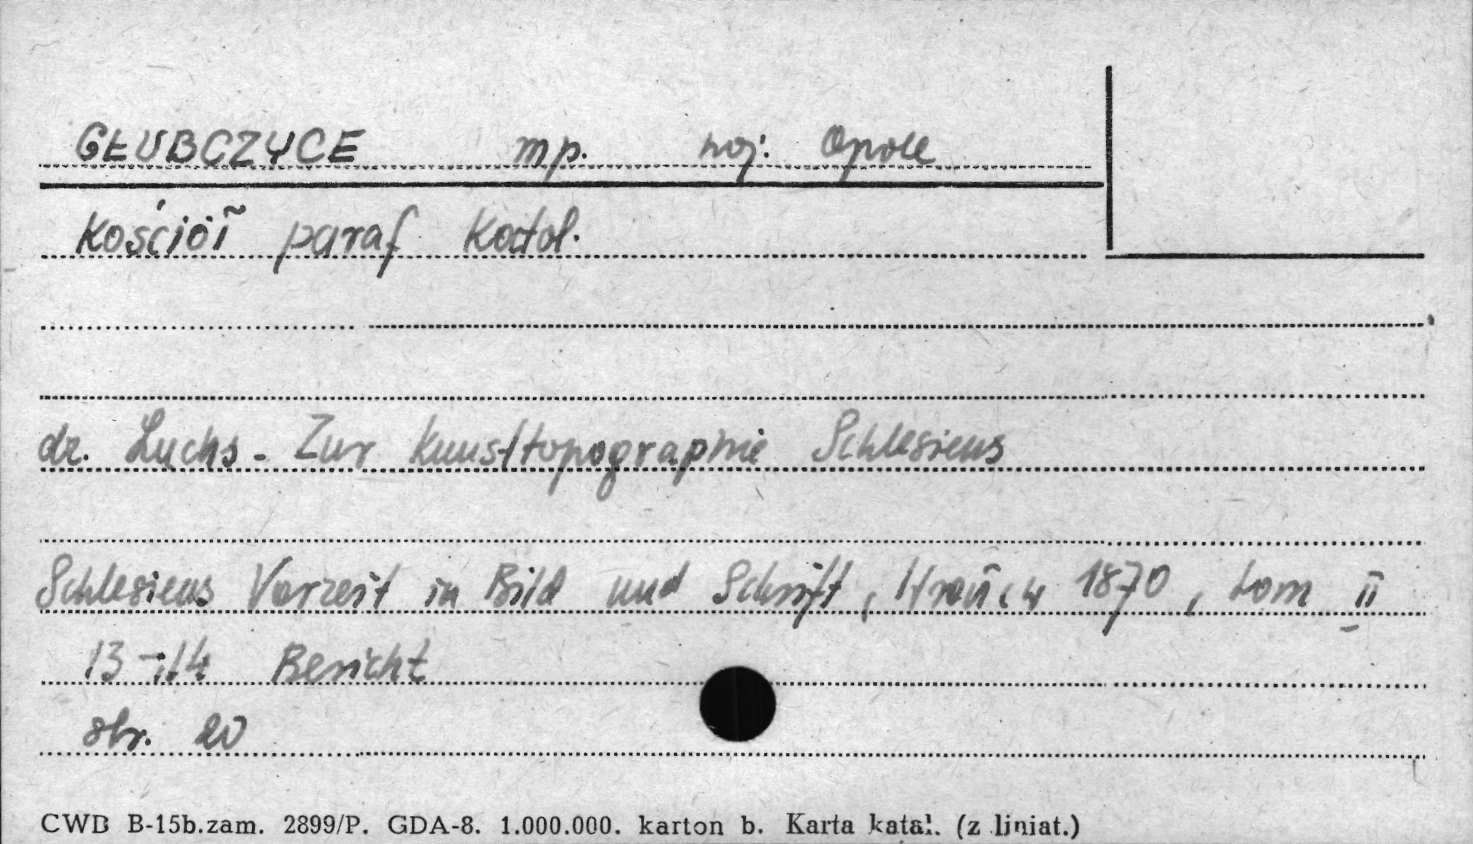 GŁUBCZYCE mp. woj. Opole
Kościół paraf Katol.
dr. Luchs - Zur Kunsttopographie Schlesiens
Schlesiens Vorzeit in Bild und Schrift, Wrocław 1870, tom II
13-14 Bericht
str. 20
CWD B-15b.zam. 2899/P. GDA-8. 1.000.000. karton b. Karta katal. (z liniat.)